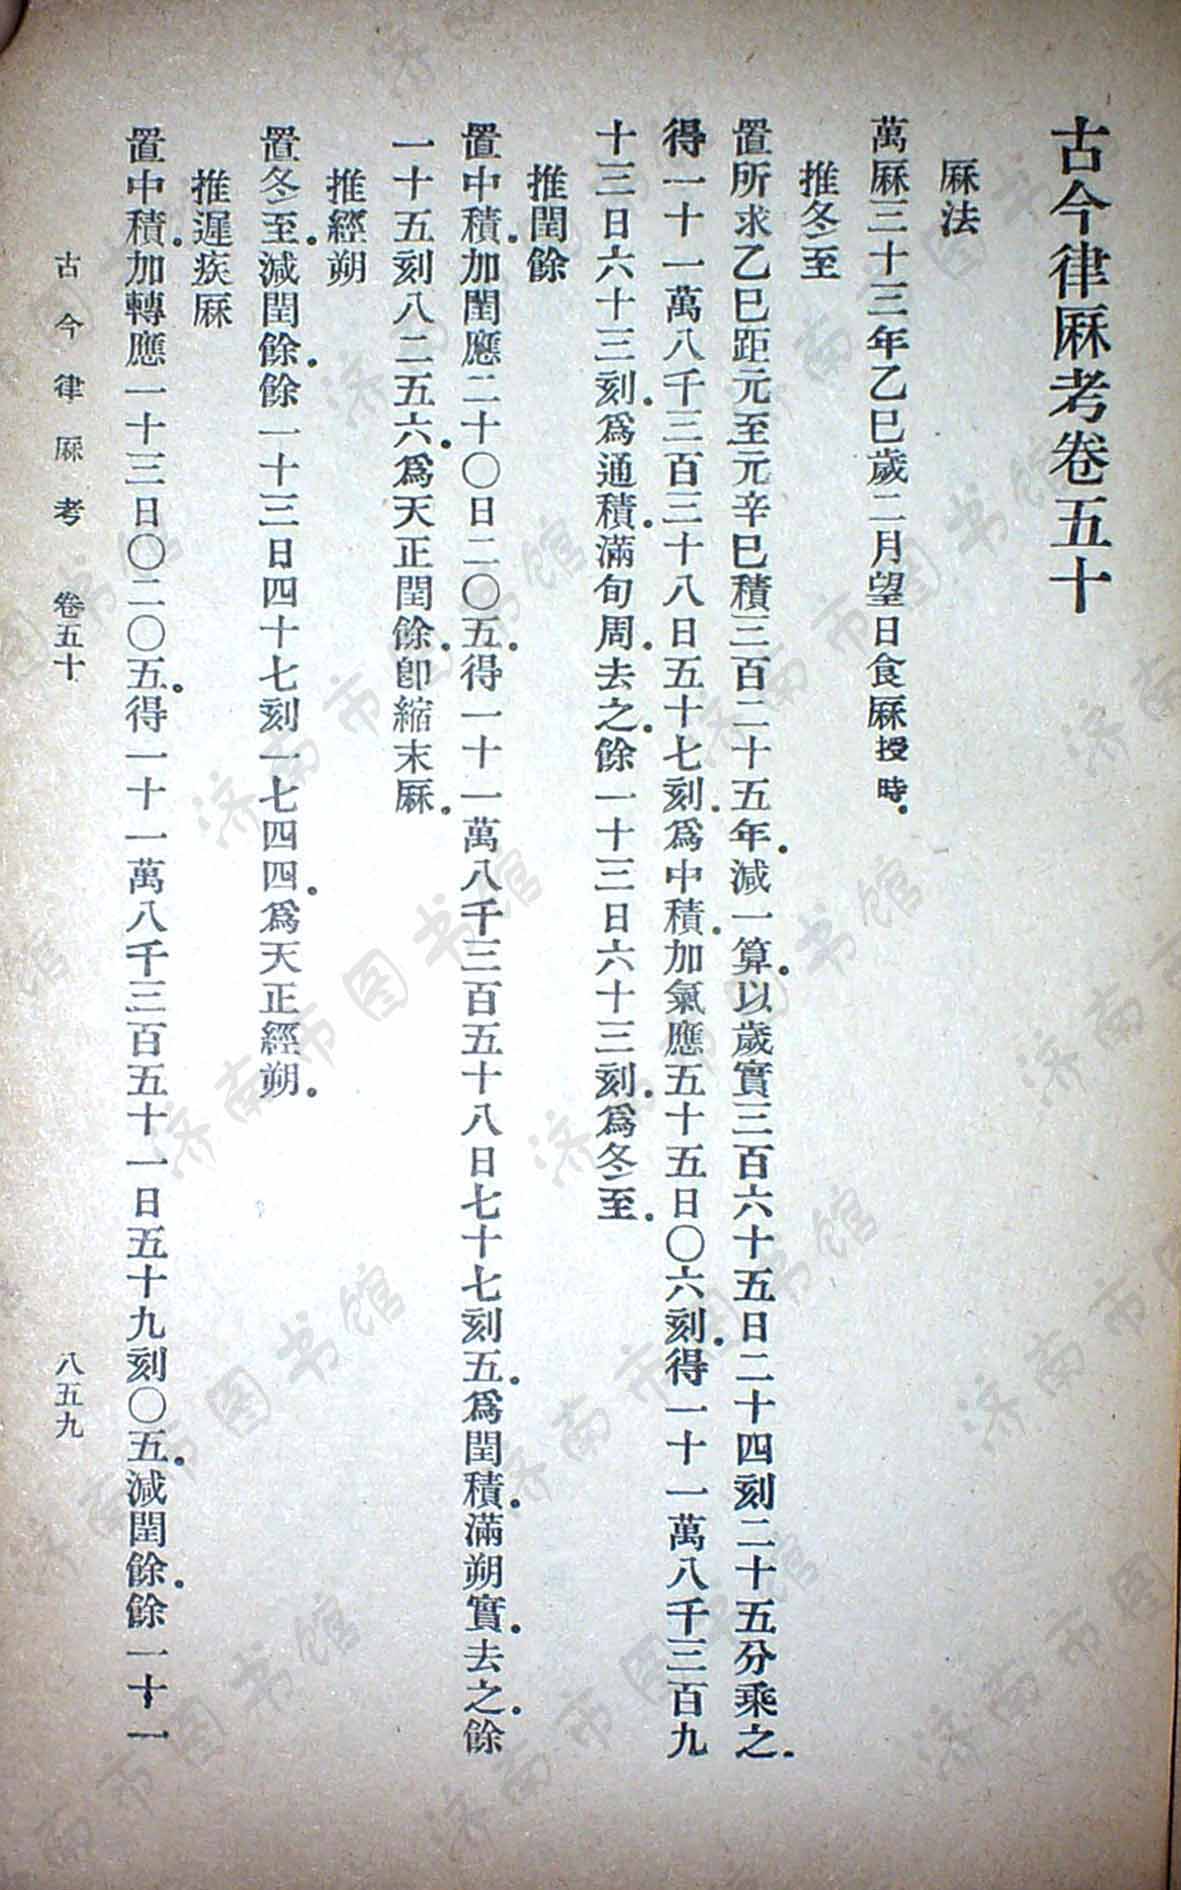 古今律厤考卷五十
厤法
萬厤三十三年乙巳歲二月望日食厤授時。
推冬至
置所求乙巳距元至元辛巳積三百二十五年。減一算。以歲實三百六十五日二十四刻二十五分乘之。
得一十一萬八千三百三十八日五十七刻。爲中積。加氣應五十五日〇六刻。得一十一萬八千三百九
十三日六十三刻。爲通積。滿旬周。去之。餘一十三日六十三刻。爲冬至。
推閏餘
置中積。加閏應二十〇日二〇五。得一十一萬八千三百五十八日七十七刻五。爲閏積。滿朔實。去之。餘
一十五刻八二五六。爲天正閏餘。卽縮末厤。
推經朔
置冬至。減閏餘。餘一十三日四十七刻一七四四。爲天正經朔。
推遲疾厤
置中積。加轉應一十三日〇二〇五。得一十一萬八千三百五十一日五十九刻〇五。減閏餘。餘一十一
古今律厤考 卷五十 八五九
济南市图书馆